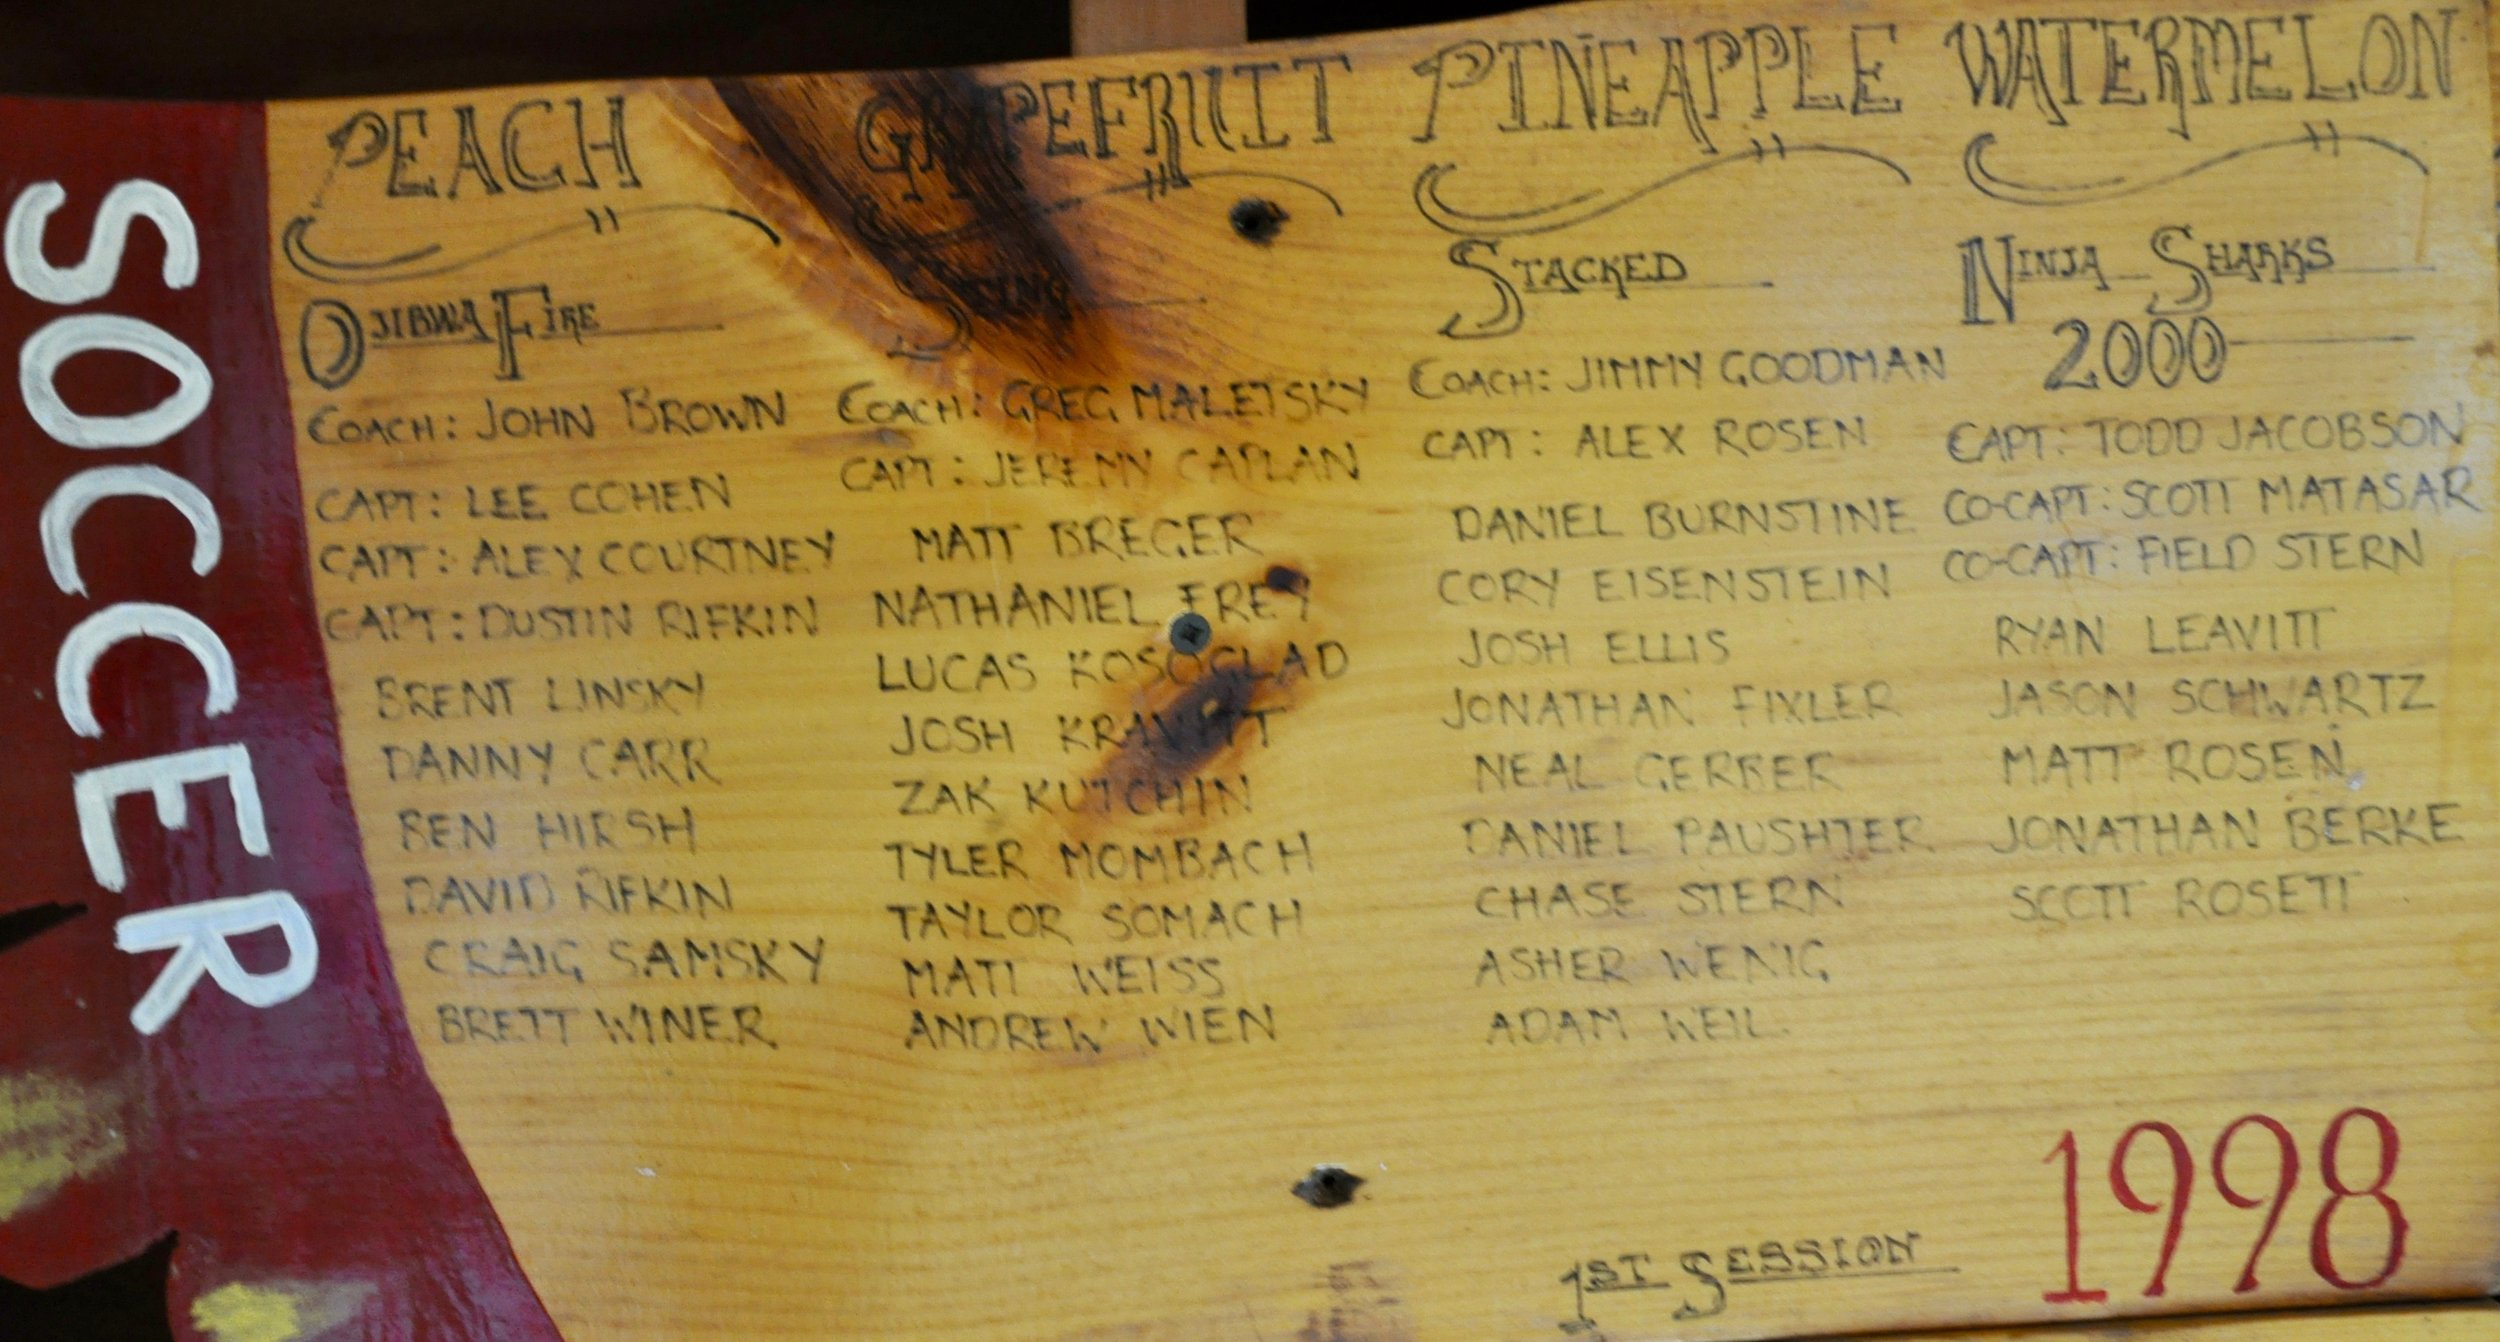 SOCCER
PEACH
OJIBWA FIRE
COACH: JOHN BROWN
CAPT: LEE COHEN
CAPT: ALEX COURTNEY
CAPT: DUSTIN RIFKIN
BRENT LINSKY
DANNY CARR
BEN HIRSH
DAVID RIFKIN
CRAIG SAMSKY
BRETT WINER
GRAPEFRUIT
STING
COACH: GREG MALETSKY
CAPT: JEREMY CAPLAN
MATT BREGER
NATHANIEL FREY
LUCAS KOSOGLAD
JOSH KRAVITT
ZAK KUTCHIN
TYLER MOMBACH
TAYLOR SOMACH
MATT WEISS
ANDREW WIEN
PINEAPPLE
STACKED
COACH: JIMMY GOODMAN
CAPT: ALEX ROSEN
DANIEL BURNSTINE
CORY EISENSTEIN
JOSH ELLIS
JONATHAN FIXLER
NEAL GERBER
DANIEL PAUSHTER
CHASE STERN
ASHER WENIG
ADAM WEIL
WATERMELON
NINJA SHARKS
2000
CAPT: TODD JACOBSON
CO-CAPT: SCOTT MATASAR
CO-CAPT: FIELD STERN
RYAN LEAVITT
JASON SCHWARTZ
MATT ROSEN
JONATHAN BERKE
SCOTT ROSETT
1ST SESSION
1998